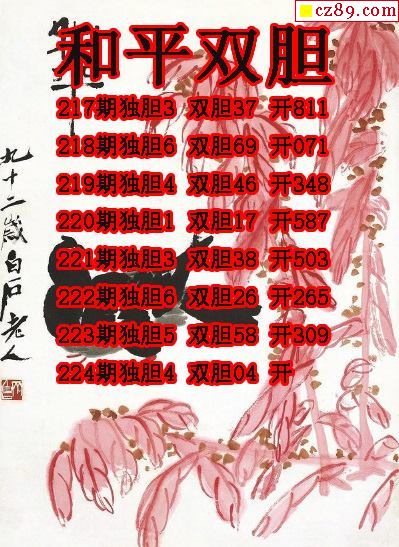 cz89.com
和平双胆
217期独胆3 双胆37 开811
218期独胆6 双胆69 开071
219期独胆4 双胆46 开348
220期独胆1 双胆17 开587
221期独胆3 双胆38 开503
222期独胆6 双胆26 开265
223期独胆5 双胆58 开309
224期独胆4 双胆04 开
九十二歲白石老人